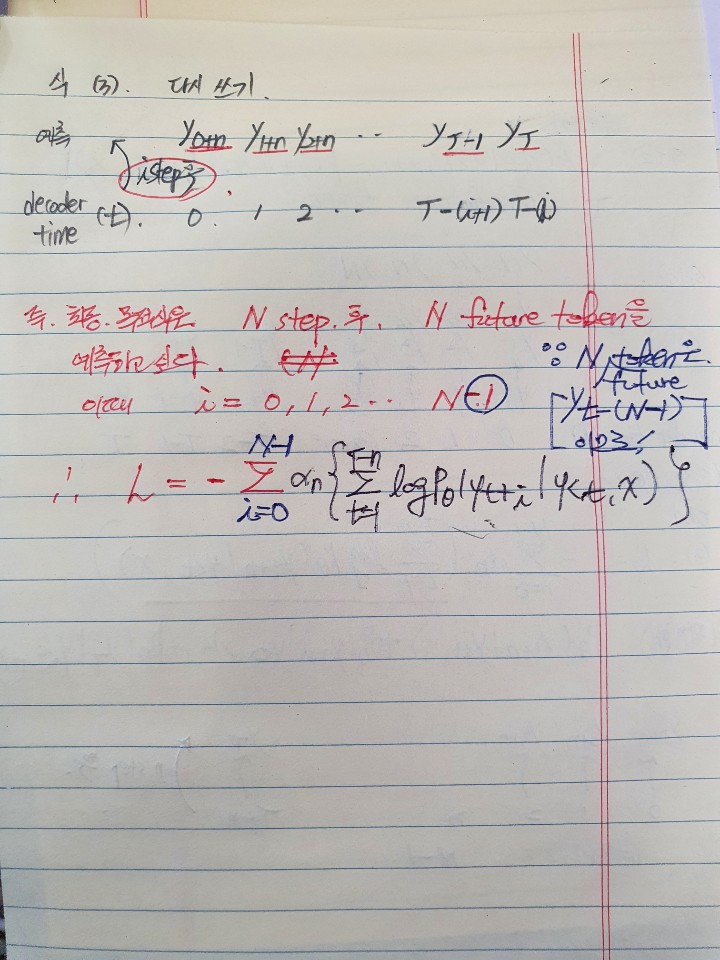 식 (3). 다시 쓰기.
예측 y0+n y1+n y2+n ·· yT-1 yT
i step 후
decoder time (t). 0. 1 2 ·· T-(i+1) T-(i)
즉. 최종. 목적식은 N step. 후. N future token을
예측하고 싶다.
∵ N future token은
이때 i = 0, 1, 2 ·· N-1
yt-(N-1)
∴ L = - Σ_{i=0}^{N-1} αn { Σ_{t=1}^{T-n} log Pθ(yt+i | y<t, x) }